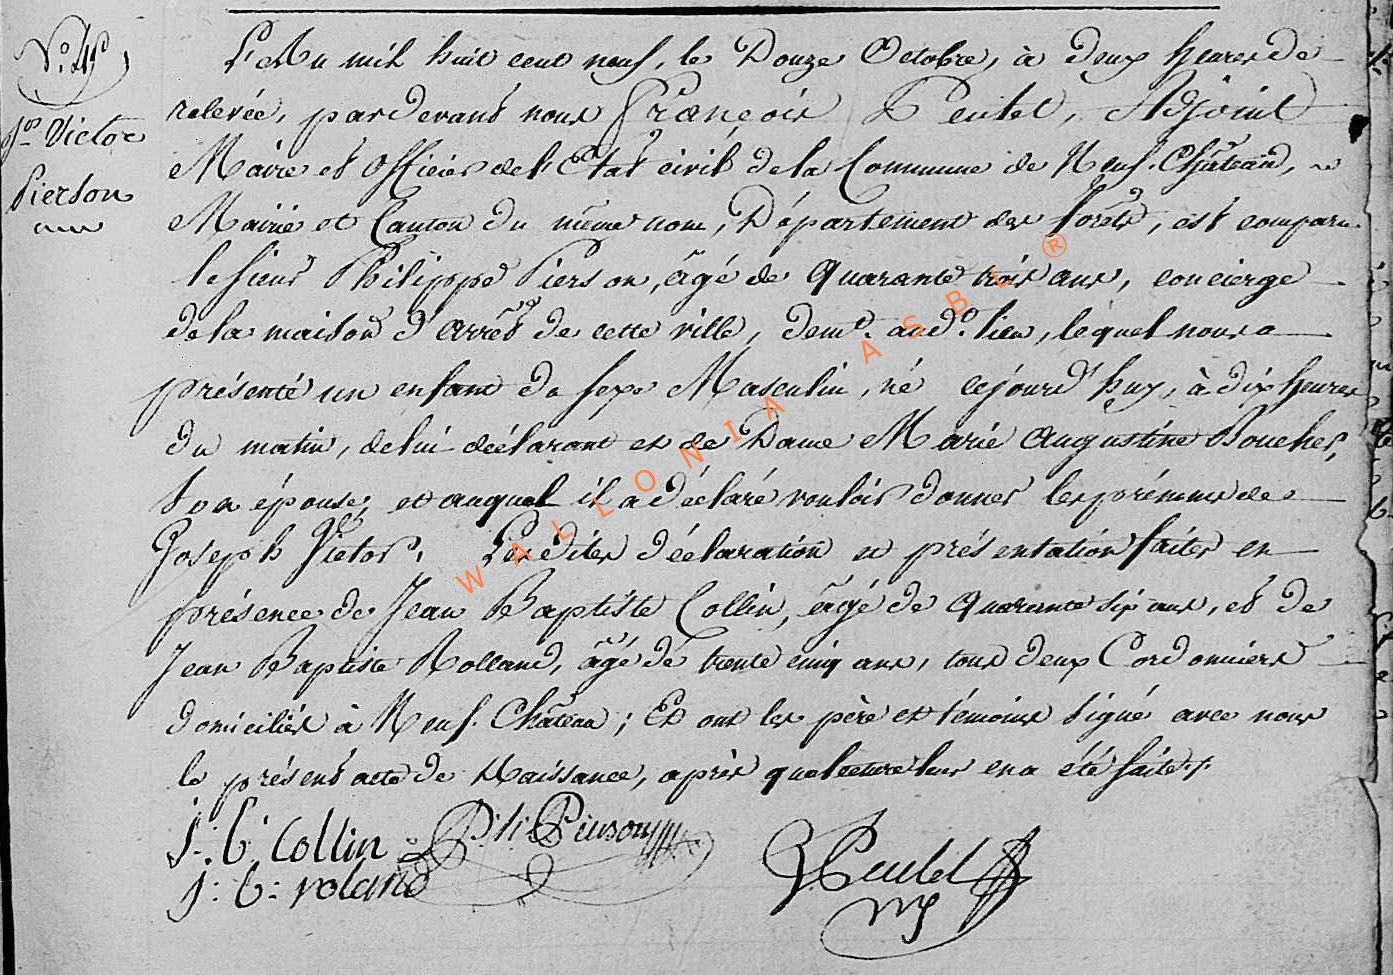 N.o 45
J.o Victor
Pierson
L'An mil huit cent neuf, le Douze Octobre, à deux heures de
relevée, pardevant nous François Pentel, Adjoint
Maire et Officier de l'Etat civil de la Commune de Neuf-Château,
Mairie et Canton du même nom, Département des forêts, est comparu
le sieur Philippe Pierson, âgé de Quarante trois ans, concierge
de la maison d'arrêt de cette ville, demt. audo. lieu, lequel nous a
présenté un enfant du sexe Masculin, né cejourd'huy, à dix heures
du matin, de lui déclarant et de Dame Marie Augustine Boucher,
son épouse, et auquel il a déclaré vouloir donner les prénoms de
Joseph Victor. Les dites déclaration et présentation faites en
présence de Jean Baptiste Collin, âgé de Quarante six ans, et de
Jean Baptiste Rolland, âgé de trente cinq ans, tous deux Cordonniers
domiciliés à Neuf-Château; Et ont les père et témoins signé avec nous
le présent acte de Naissance, après que lecture leur en a été faite./.
J. B. Collin Ph. Pierson
J: b: roland
WALLONIA ASBL ®